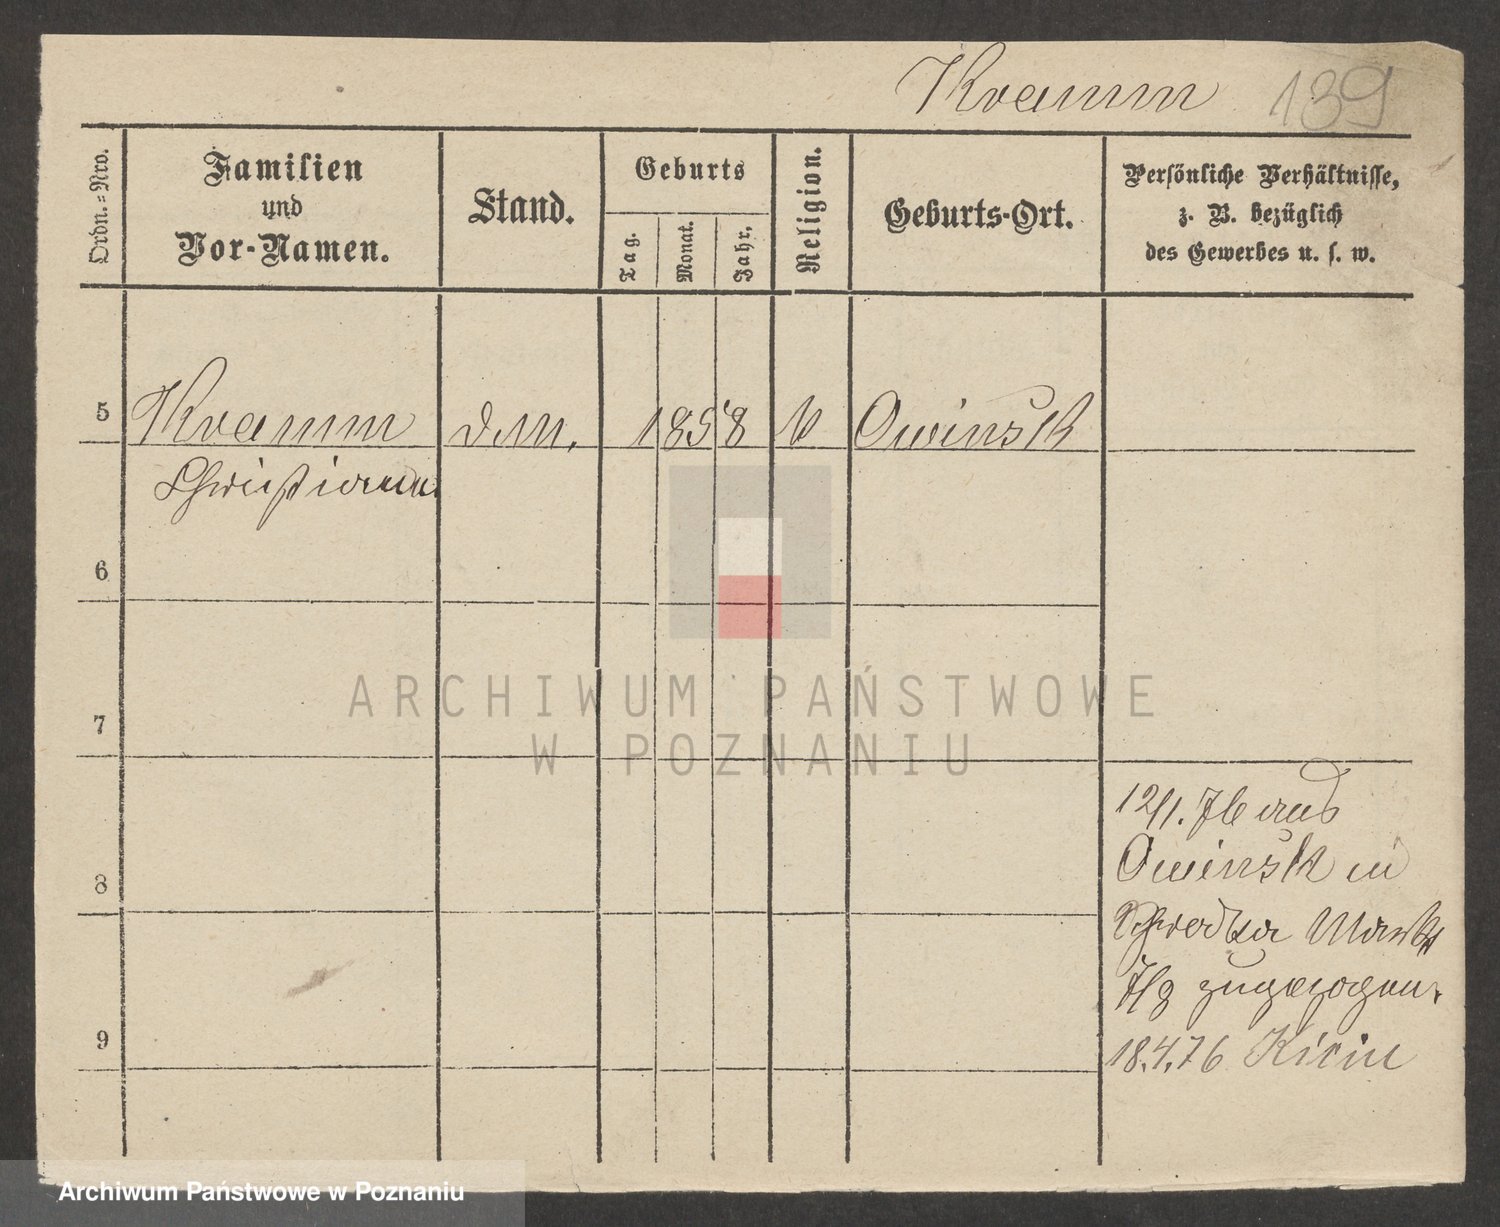 Kramm 139
Ordn.-Nro.
Familien
und
Vor-Namen.
Stand.
Geburts
Tag.
Monat.
Jahr.
Religion.
Geburts-Ort.
Persönliche Verhältnisse,
z. B. bezüglich
des Gewerbes u. s. w.
5 Kramm d.M. 1858 Owinsk
Christiane
6
7
8
9
12/1. 76 aus
Owinsk in
Markt
7/9 zugezogen.
18.4.76
ARCHIWUM PAŃSTWOWE
W POZNANIU
Archiwum Państwowe w Poznaniu